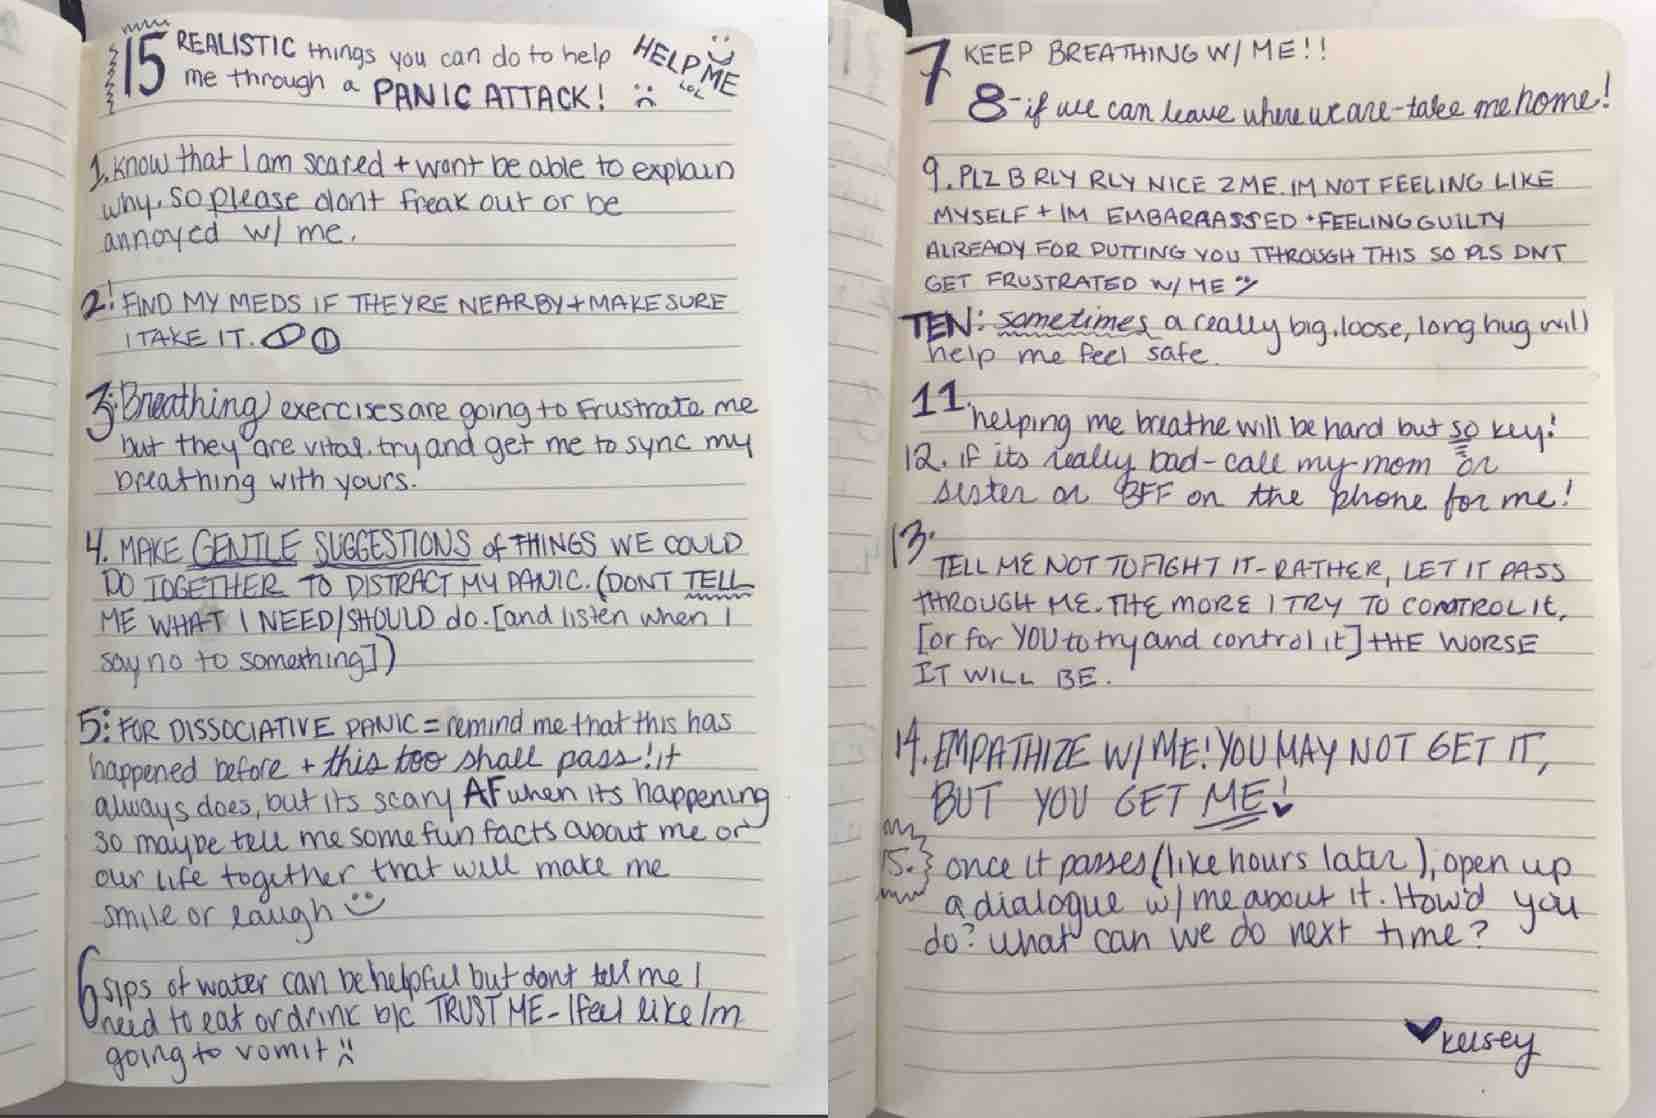 15 REALISTIC things you can do to help
me through a PANIC ATTACK! :(
HELP ME LOL
1. Know that I am scared + wont be able to explain
why. so please dont freak out or be
annoyed w/ me.
2! FIND MY MEDS IF THEYRE NEARBY + MAKE SURE
I TAKE IT.
3. Breathing exercises are going to frustrate me
but they are vital. try and get me to sync my
breathing with yours.
4. MAKE GENTLE SUGGESTIONS of THINGS WE COULD
DO TOGETHER TO DISTRACT MY PANIC. (DONT TELL
ME WHAT I NEED/SHOULD do. [and listen when I
say no to something])
5: FOR DISSOCIATIVE PANIC = remind me that this has
happened before + this too shall pass! it
always does, but its scary AF when its happening
so maybe tell me some fun facts about me or
our life together that will make me
smile or laugh :)
6 sips of water can be helpful but dont tell me I
need to eat or drink b/c TRUST ME - I feel like Im
going to vomit :(
7 KEEP BREATHING W/ ME!!
8 - if we can leave where we are - take me home!
9. PLZ B RLY RLY NICE 2 ME. IM NOT FEELING LIKE
MYSELF + IM EMBARAASSED + FEELING GUILTY
ALREADY FOR PUTTING YOU THROUGH THIS SO PLS DNT
GET FRUSTRATED W/ ME :)
TEN: sometimes a really big, loose, long hug will
help me feel safe.
11. helping me breathe will be hard but so key!
12. if its really bad - call my mom or
sister or BFF on the phone for me!
13. TELL ME NOT TO FIGHT IT - RATHER, LET IT PASS
THROUGH ME. THE MORE I TRY TO CONTROL IT,
[or for YOU to try and control it] THE WORSE
IT WILL BE.
14. EMPATHIZE W/ ME! YOU MAY NOT GET IT,
BUT YOU GET ME!
15. once it passes (like hours later), open up
a dialogue w/ me about it. How'd you
do? what can we do next time?
♥kelsey